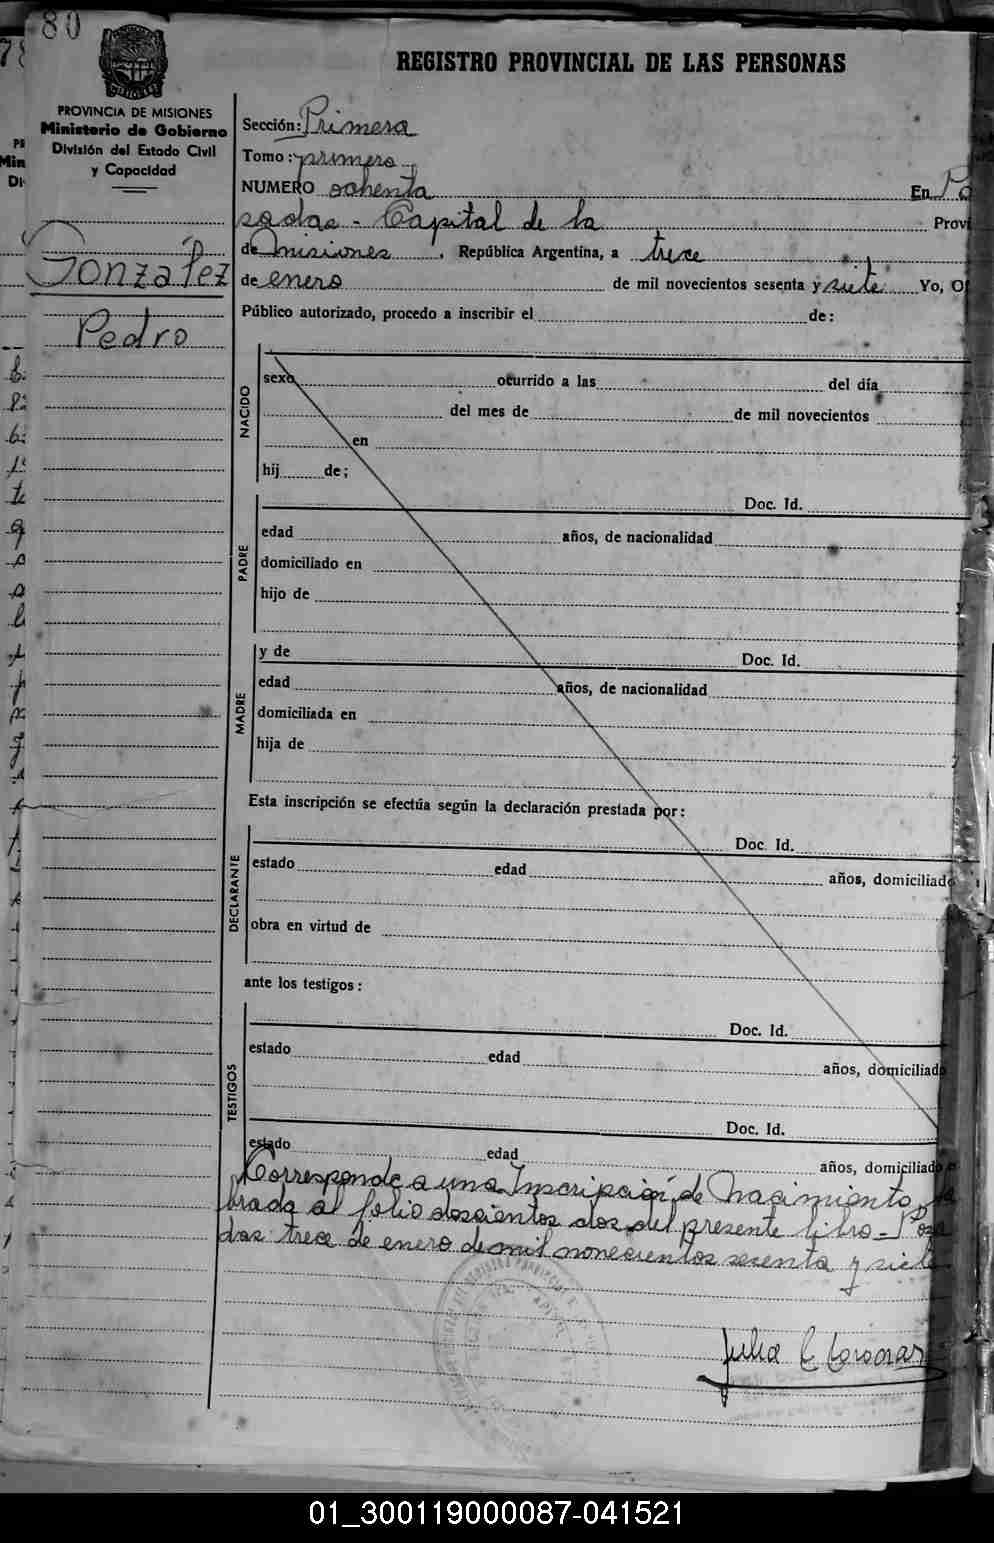 80
REGISTRO PROVINCIAL DE LAS PERSONAS
PROVINCIA DE MISIONES
Ministerio de Gobierno
División del Estado Civil
y Capacidad
González
Pedro
Sección: Primera
Tomo: primero
NUMERO ochenta En Po
sadas - Capital de la Provi
de misiones, República Argentina, a trece
de enero de mil novecientos sesenta y siete Yo, O
Público autorizado, procedo a inscribir el de:
NACIDO
sexo ocurrido a las del día
del mes de de mil novecientos
en
hij de;
PADRE
Doc. Id.
edad años, de nacionalidad
domiciliado en
hijo de y
MADRE
y de Doc. Id.
edad años, de nacionalidad
domiciliada en
hija de
Esta inscripción se efectúa según la declaración prestada por:
DECLARANTE
Doc. Id.
estado edad años, domiciliado
obra en virtud de
ante los testigos:
TESTIGOS
Doc. Id.
estado edad años, domiciliado
Doc. Id.
estado edad años, domiciliado
Corresponde a una Inscripción de Nacimiento, la
brada al folio doscientos dos del presente libro - Posa
das trece de enero de mil novecientos sesenta y siete
Julia C
01_300119000087-041521